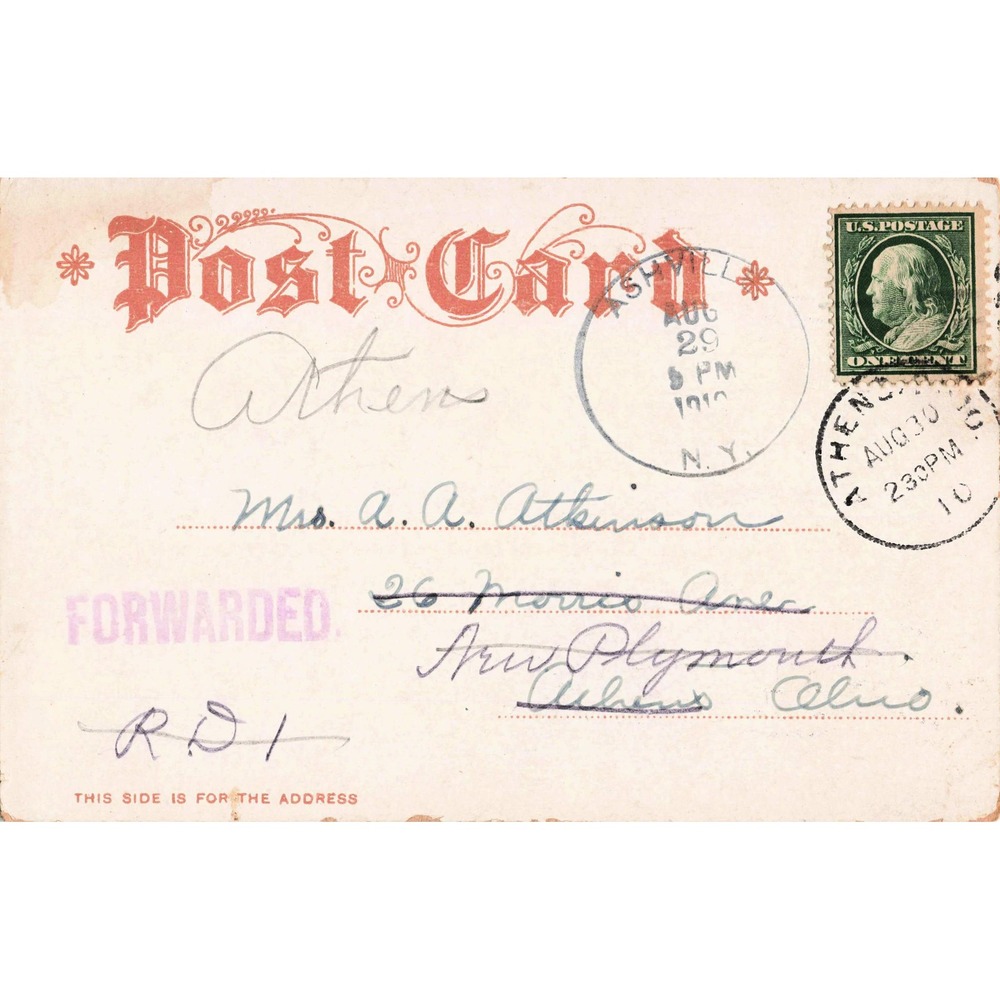 Post Card
U.S. POSTAGE
ONE CENT
ASHVILL
AUG
29
PM
1910
N.Y.
Athens
ATHENS, OHIO.
AUG 30
230PM
10
Mrs. A. A. Atkinson
26 Morris Ave
FORWARDED.
New Plymouth.
Athens Ohio.
R.D 1
THIS SIDE IS FOR THE ADDRESS